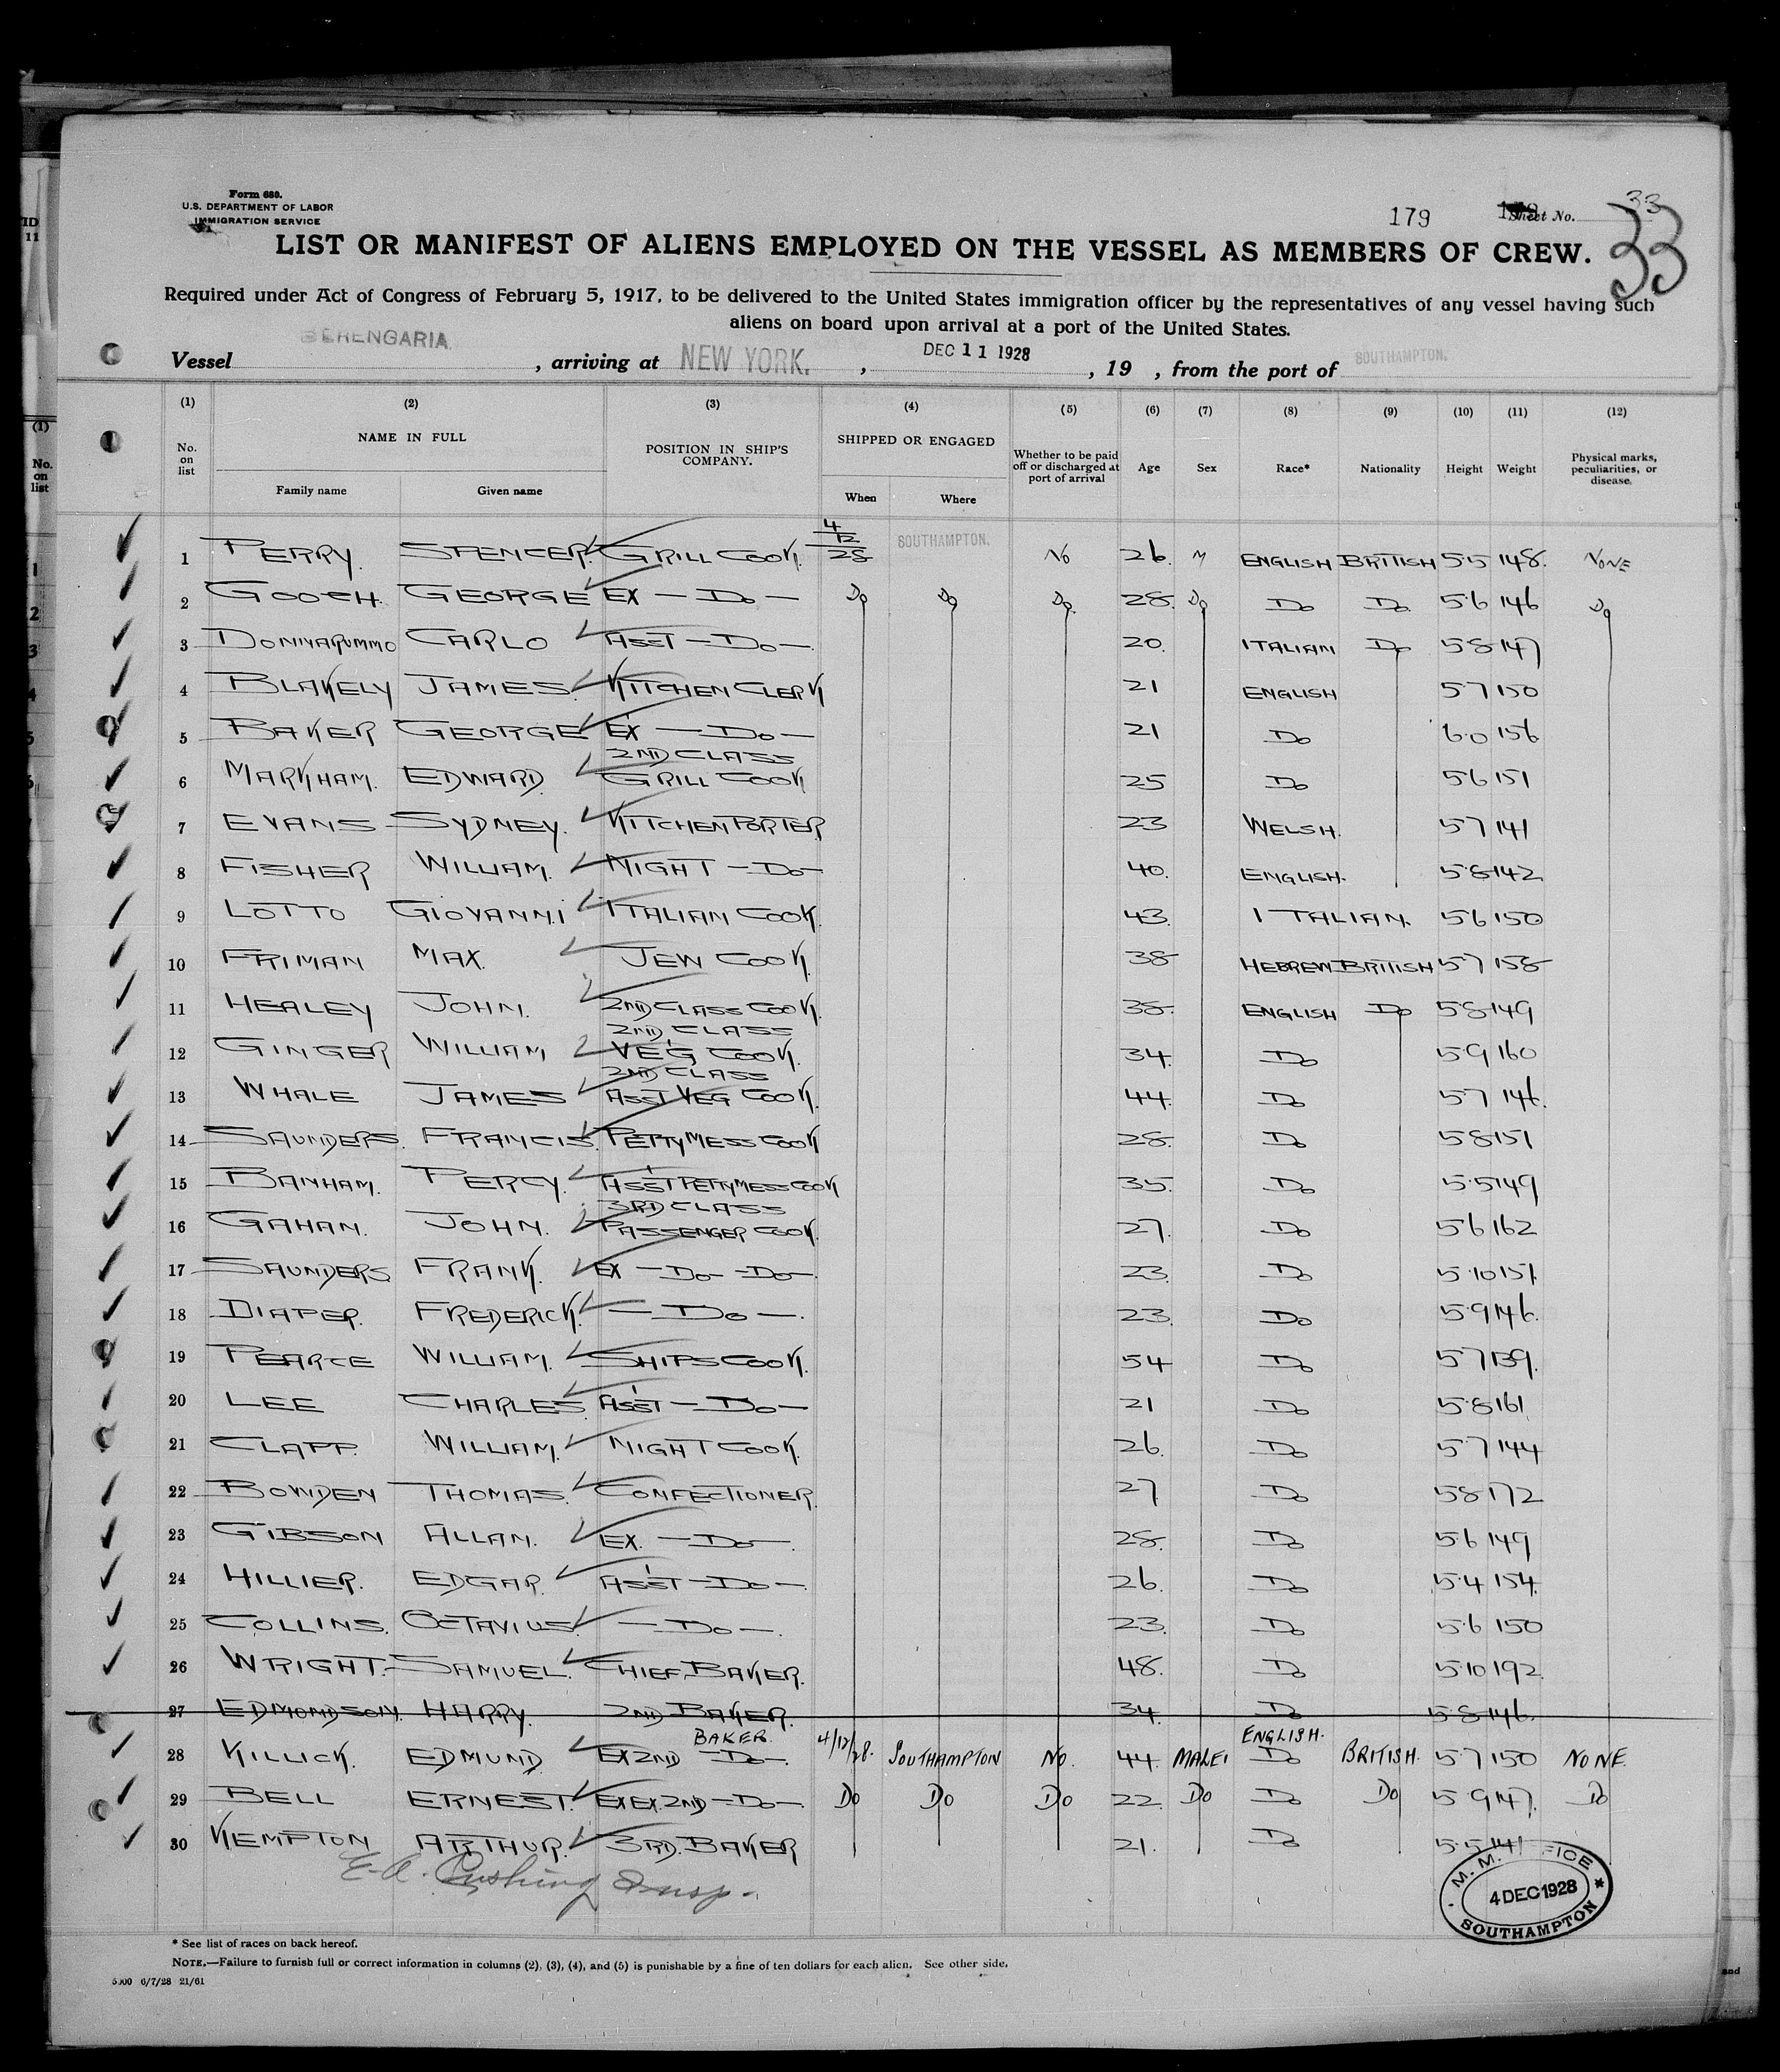 Form 680.
U.S. DEPARTMENT OF LABOR
IMMIGRATION SERVICE
179 Sheet No. 33
33
LIST OR MANIFEST OF ALIENS EMPLOYED ON THE VESSEL AS MEMBERS OF CREW.
Required under Act of Congress of February 5, 1917, to be delivered to the United States immigration officer by the representatives of any vessel having such
aliens on board upon arrival at a port of the United States.
Vessel BERENGARIA, arriving at NEW YORK., DEC 11 1928, 19 , from the port of SOUTHAMPTON.
(1) (2) (3) (4) (5) (6) (7) (8) (9) (10) (11) (12)
No. on list NAME IN FULL Family name Given name POSITION IN SHIP'S COMPANY. SHIPPED OR ENGAGED When Where Whether to be paid off or discharged at port of arrival Age Sex Race* Nationality Height Weight Physical marks, peculiarities, or disease.
1 PERRY. SPENCER. GRILL COOK. 4/12/28 SOUTHAMPTON. NO 26. M ENGLISH BRITISH 5 5 148. NONE
2 GOOCH. GEORGE EX — DO — DO DO DO 28. DO DO DO 5.6 146 DO
3 DONNARUMMO CARLO ASST — DO —. 20. ITALIAN DO 5.8 147
4 BLAKELY JAMES KITCHEN CLERK 21 ENGLISH 5 7 150
5 BAKER GEORGE EX — DO — 21 DO 6.0 156
6 MARKHAM. EDWARD. 2ND CLASS GRILL COOK 25 DO 5.6 151
7 EVANS SYDNEY. KITCHEN PORTER 23 WELSH. 5 7 141
8 FISHER WILLIAM. NIGHT — DO — 40. ENGLISH. 5.8 142
9 LOTTO GIOVANNI ITALIAN COOK. 43. ITALIAN. 5.6 150
10 FRIMAN MAX. JEW COOK. 38 HEBREW BRITISH 5 7 158
11 HEALEY JOHN. 2ND CLASS COOK. 38. ENGLISH DO 5.8 149
12 GINGER WILLIAM 2ND CLASS VEG COOK. 34. DO 5.9 160
13 WHALE JAMES 2ND CLASS ASST VEG COOK. 44. DO 5 7 146.
14 SAUNDERS. FRANCIS. PETTY MESS COOK 28. DO 5 8 151
15 BANHAM. PERCY. ASST PETTY MESS COOK 35. DO 5.5 149
16 GAHAN. JOHN. 3RD CLASS PASSENGER COOK. 27. DO 5 6 162
17 SAUNDERS FRANK. EX — DO — DO —. 23. DO 5.10 151.
18 DIAPER. FREDERICK. — DO —. 23. DO 5.9 146.
19 PEARCE WILLIAM. SHIPS COOK. 54 DO 5 7 139.
20 LEE CHARLES. ASST — DO — 21 DO 5.8 161
21 CLAPP. WILLIAM. NIGHT COOK. 26. DO 5.7 144
22 BOWDEN THOMAS. CONFECTIONER. 27 DO 5 8 172
23 GIBSON ALLAN. EX. — DO —. 28. DO 5.6 149
24 HILLIER. EDGAR. ASST — DO —. 26. DO 5.4 154.
25 COLLINS. OCTAVIUS. — DO —. 23. DO 5.6 150
26 WRIGHT. SAMUEL. CHIEF BAKER. 48. DO 5.10 192.
27 EDMONDSON. HARRY. 2ND BAKER. 34. DO 5 8 146.
28 KILLICK. EDMUND EX 2ND — DO —. BAKER. 4/12/28. SOUTHAMPTON NO. 44. MALE ENGLISH. DO BRITISH. 5.7 150 NONE.
29 BELL ERNEST. EX EX. 2ND — DO —. DO DO DO 22. DO DO DO 5 9 147. DO
30 KEMPTON ARTHUR. 3RD. BAKER 21. DO 5.5 141
E. A. Cushing Insp.
M. M. OFFICE
4 DEC 1928
SOUTHAMPTON
* See list of races on back hereof.
NOTE.—Failure to furnish full or correct information in columns (2), (3), (4), and (5) is punishable by a fine of ten dollars for each alien. See other side.
5000 6/7/28 21/61